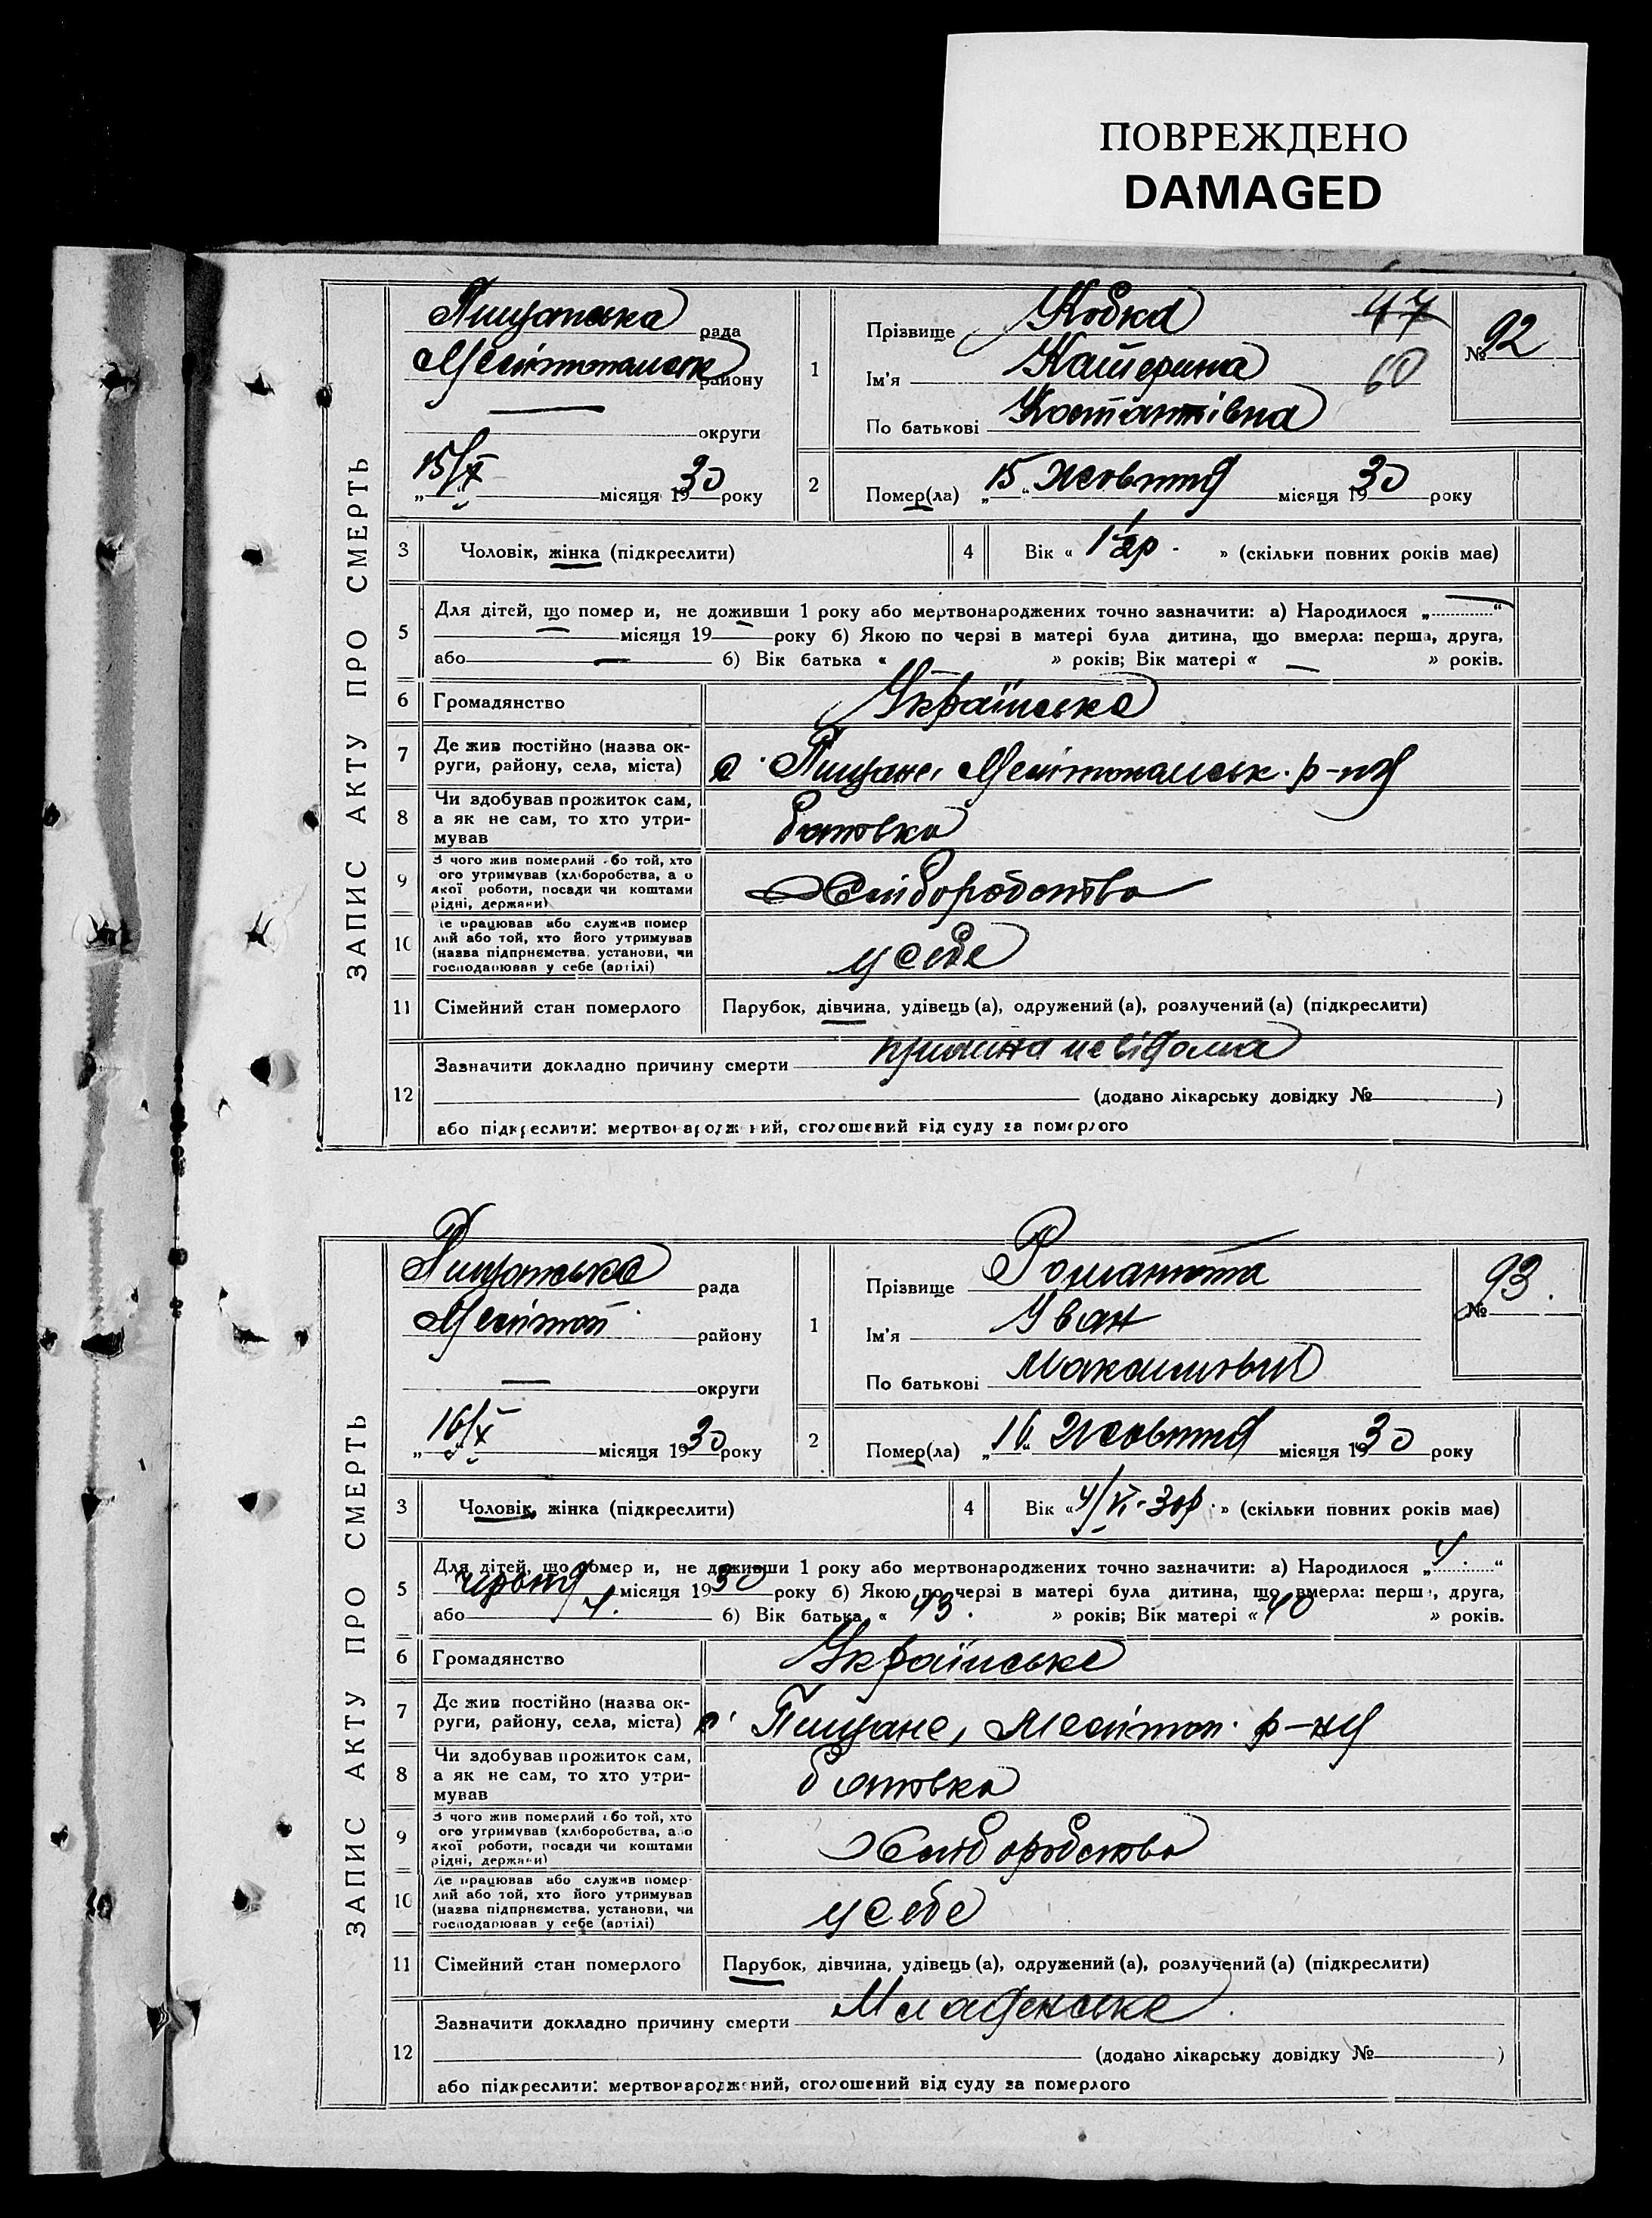 ПОВРЕЖДЕНО
DAMAGED
ЗАПИС АКТУ ПРО СМЕРТЬ
Пищанська рада
району
округи
„15/X“ місяця 1930 року
1
Прізвище Кобка 47
Ім'я Катерина 60
По батькові Костантівна
№ 92
2 Помер(ла) „15“ жовтня місяця 1930 року
3 Чоловік, жінка (підкреслити)
4 Вік « 1½р. » (скільки повних років має)
5 Для дітей, що помер и, не доживши 1 року або мертвонароджених точно зазначити: а) Народилося „—“
— місяця 19— року б) Якою по черзі в матері була дитина, що вмерла: перша, друга,
або — б) Вік батька « — » років; Вік матері « — » років.
6 Громадянство Українське
7 Де жив постійно (назва ок-
руги, району, села, міста) с. Пищане, Мелітопольськ. р-ну
8 Чи здобував прожиток сам,
а як не сам, то хто утри-
мував батовка
9 З чого жив померлий або той, хто
ого утримував (хліборобства, а о
якої роботи, посади чи коштами
рідні, держави) Хліборобство
10 е працював або служив помер
лий або той, хто його утримував
(назва підприємства, установи, чи
господарював у себе (артілі) у себе
11 Сімейний стан померлого Парубок, дівчина, удівець (а), одружений (а), розлучений (а) (підкреслити)
12 Зазначити докладно причину смерти причина невідома
(додано лікарську довідку № )
або підкреслити: мертвонароджений, оголошений від суду за померлого
ЗАПИС АКТУ ПРО СМЕРТЬ
Пищанська рада
Меліттоп району
— округи
„16/X“ місяця 1930 року
1
Прізвище
Ім'я Іван
По батькові Максимович
№ 93.
2 Помер(ла) „16“ Жовтня місяця 1930 року
3 Чоловік, жінка (підкреслити)
4 Вік « 4/VI-30р. » (скільки повних років має)
5 Для дітей, що помер и, не доживши 1 року або мертвонароджених точно зазначити: а) Народилося „4.“
червня місяця 1930 року б) Якою по черзі в матері була дитина, що вмерла: перш, друга,
або 7. б) Вік батька « 43. » років; Вік матері « 40 » років.
6 Громадянство Українське
7 Де жив постійно (назва ок-
руги, району, села, міста) с. Пищане, Меліттоп. р-ну
8 Чи здобував прожиток сам,
а як не сам, то хто утри-
мував батовка
9 З чого жив померлий або той, хто
ого утримував (хліборобства, або
якої роботи, посади чи коштами
рідні, держави) Хліборобство
10 Де працював або служив помер-
лий або той, хто його утримував
(назва підприємства, установи, чи
господарював у себе (артілі) у себе
11 Сімейний стан померлого Парубок, дівчина, удівець (а), одружений (а), розлучений (а) (підкреслити)
12 Зазначити докладно причину смерти Младенське
(додано лікарську довідку № )
або підкреслити: мертвонароджений, оголошений від суду за померлого